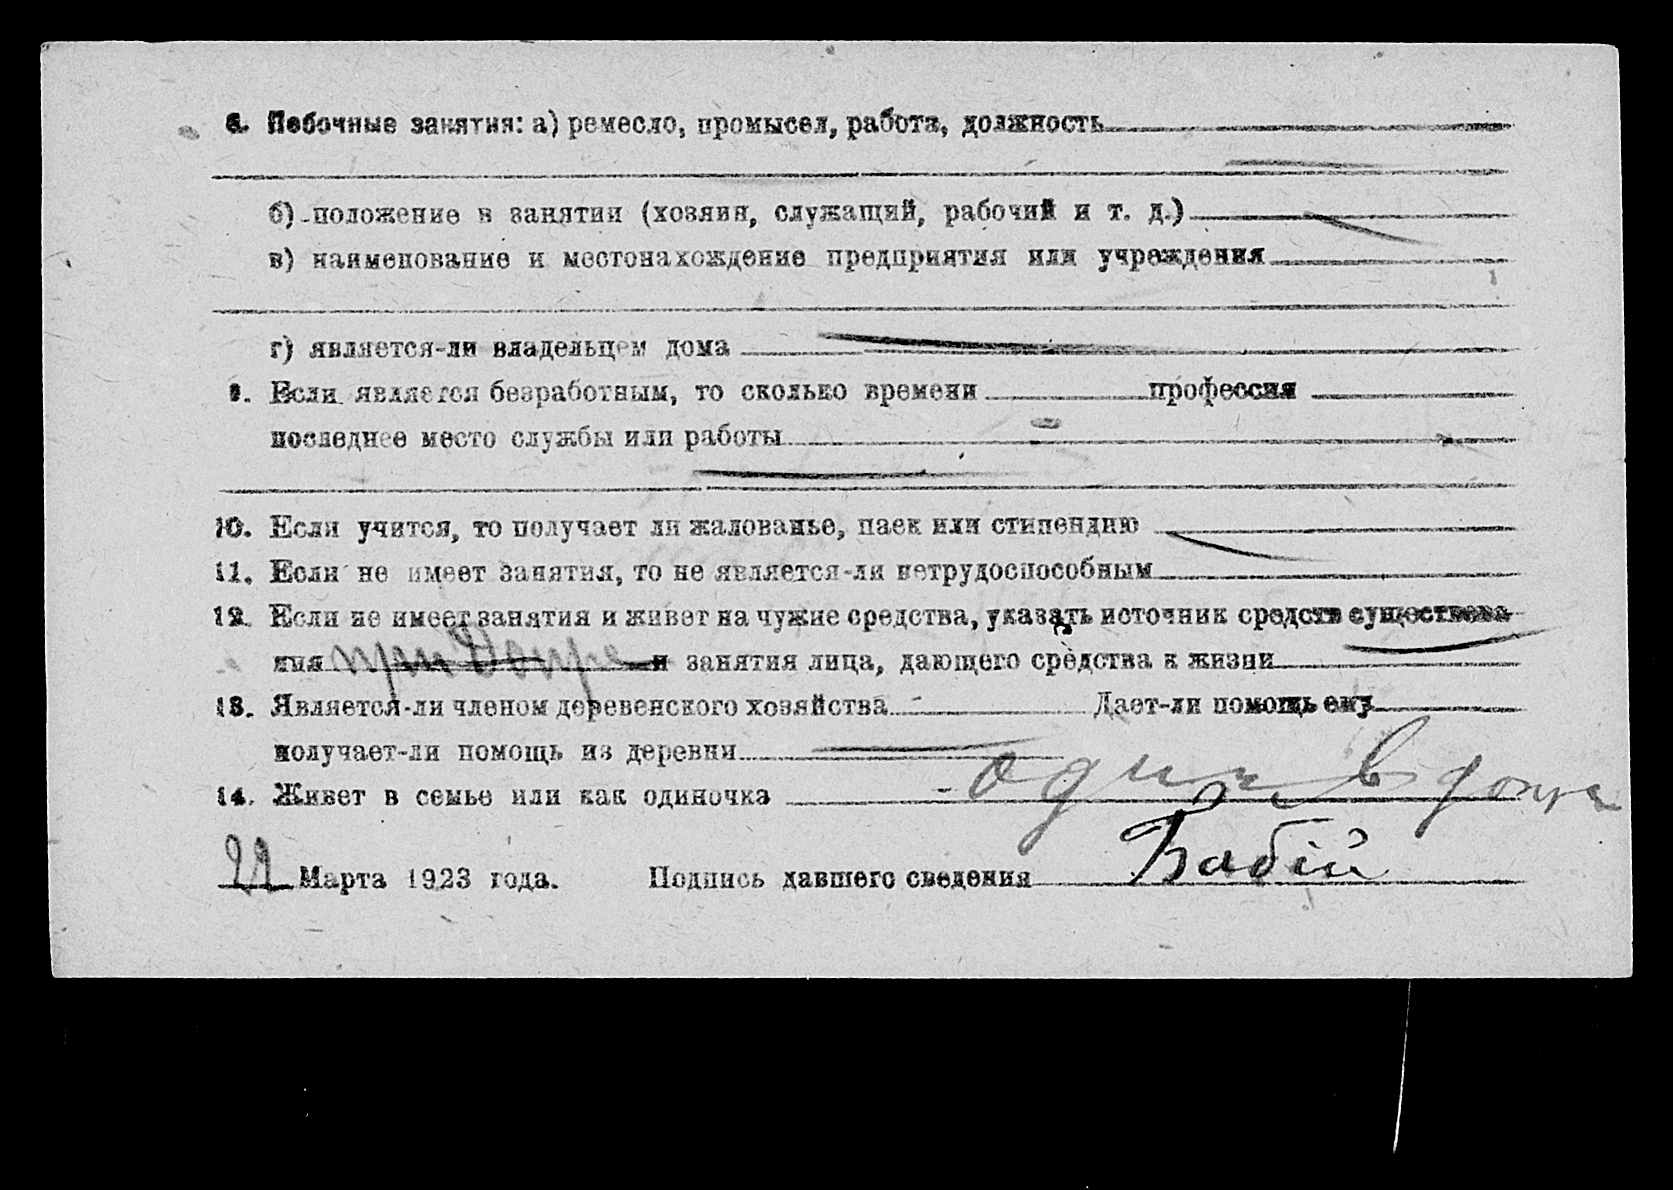 8. Побочные занятия: а) ремесло, промысел, работа, должность
б) положение в занятии (хозяин, служащий, рабочий и т. д.)
в) наименование и местонахождение предприятия или учреждения
г) является-ли владельцем дома
9. Если является безработным, то сколько времени профессия
последнее место службы или работы
10. Если учится, то получает ли жалованье, паек или стипендию
11. Если не имеет занятия, то не является-ли нетрудоспособным
12. Если не имеет занятия и живет на чужие средства, указать источник средств существова-
ния и занятия лица, дающего средства к жизни
13. Является-ли членом деревенского хозяйства Дает-ли помощь ему
получает-ли помощь из деревни
14. Живет в семье или как одиночка один, в
22 Марта 1923 года. Подпись давшего сведения Бабій